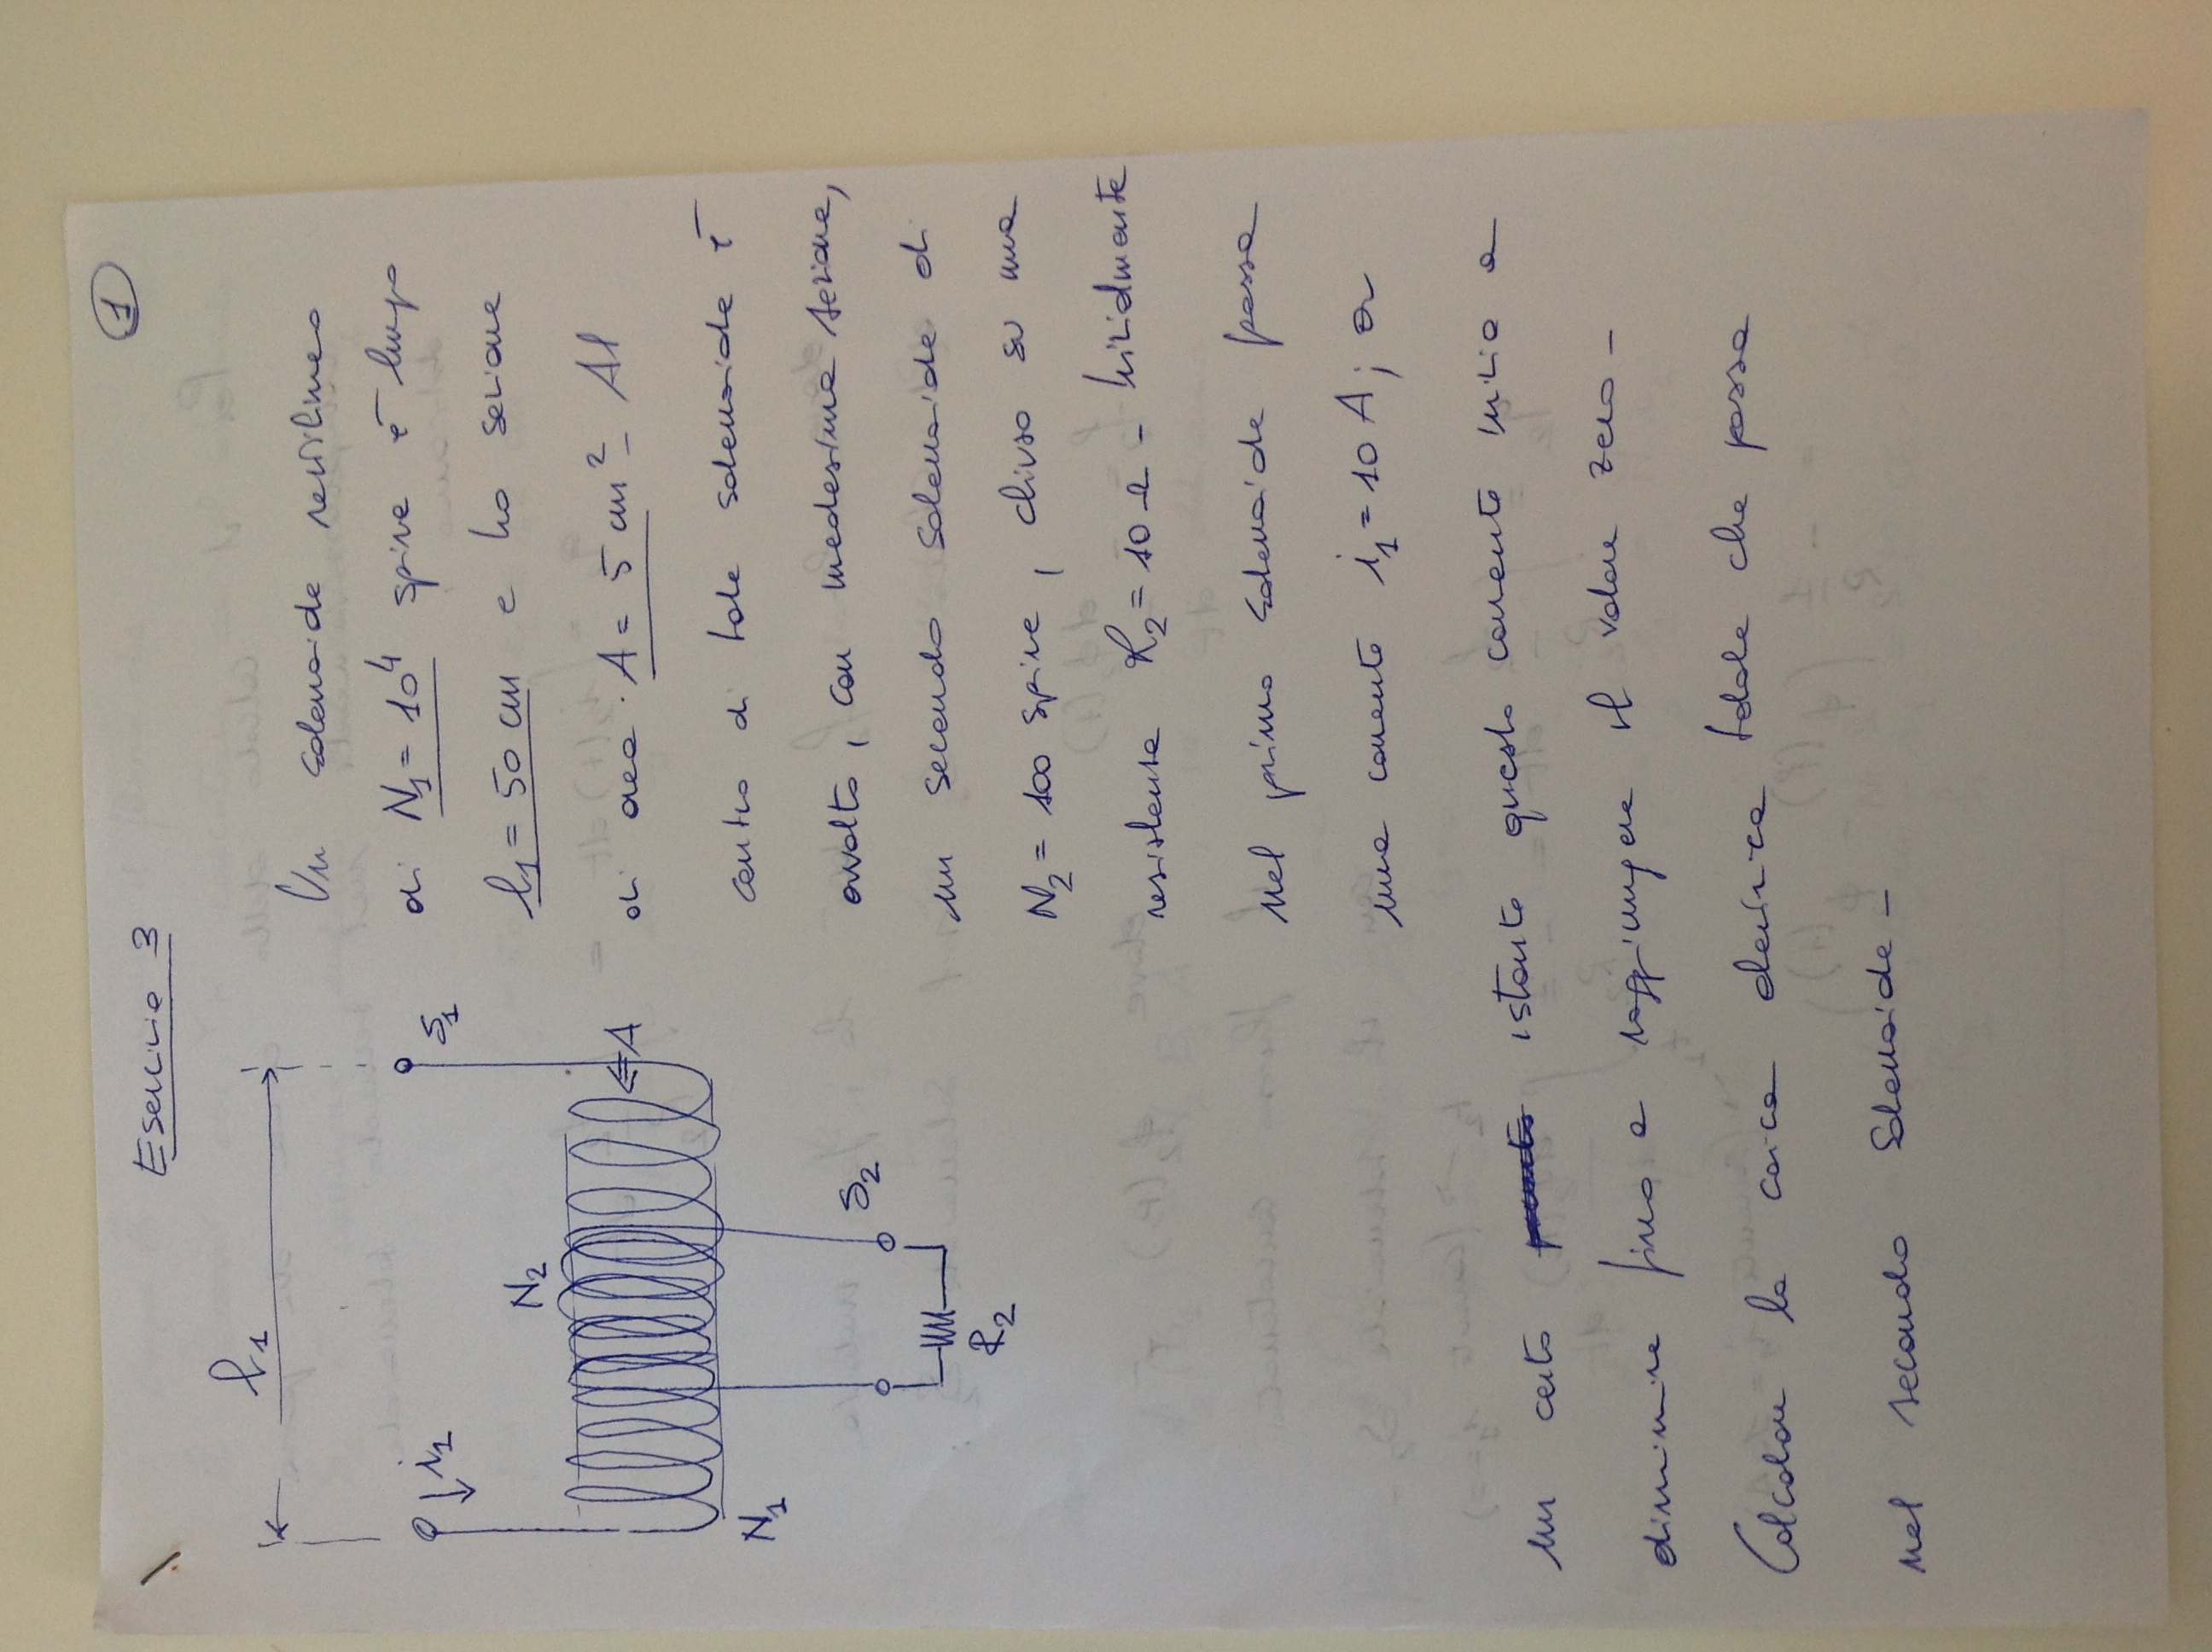 1
Esercizio 3
l1
i1
S1
N2
A
N1
S2
R2
Un solenoide rettilineo
di N1 = 10^4 spire è lungo
l1 = 50 cm e ha sezione
di area A = 5 cm² - Al
centro di tale solenoide è
avvolto, con medesima sezione,
un secondo solenoide di
N2 = 100 spire, chiuso su una
resistenza R2 = 10 Ω - Inizialmente
nel primo solenoide passa
una corrente i1 = 10 A; a
un certo istante questa corrente inizia a
diminuire fino a raggiungere il valore zero -
Calcolare la carica elettrica totale che passa
nel secondo solenoide -